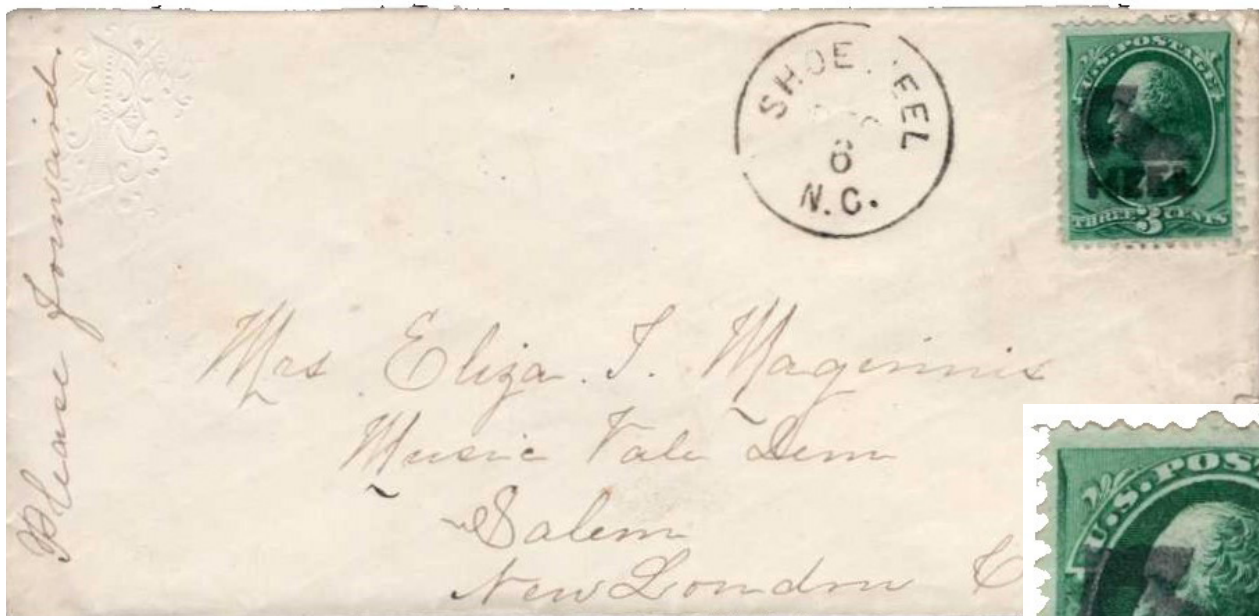 Please forward.
SHOE EEL
6
N.C.
U.S. POSTAGE
THREE 3 CENTS
Mrs Eliza. T. Maginnis
Music Vale Sem
Salem
New London
U.S. POS